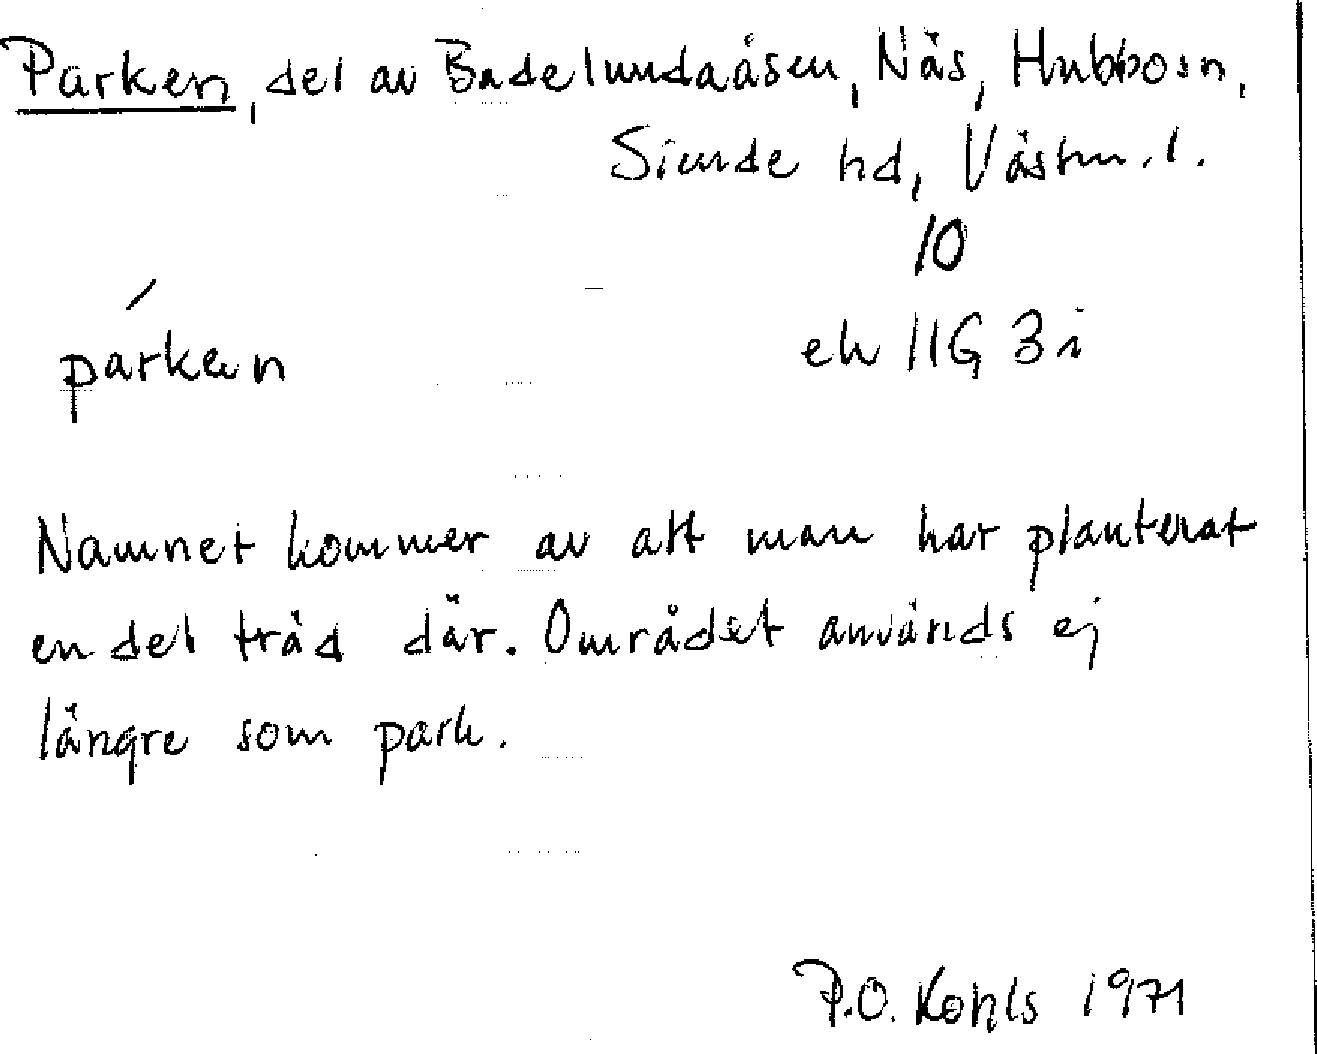 Parken, del av Badelundaåsen, Näs, Hubbo sn,
Siende hd, Västm. l.
10
ek 11G 3i
parkæn
Namnet kommer av att man har planterat
en del träd där. Området används ej
längre som park.
P.O. Kohls 1971